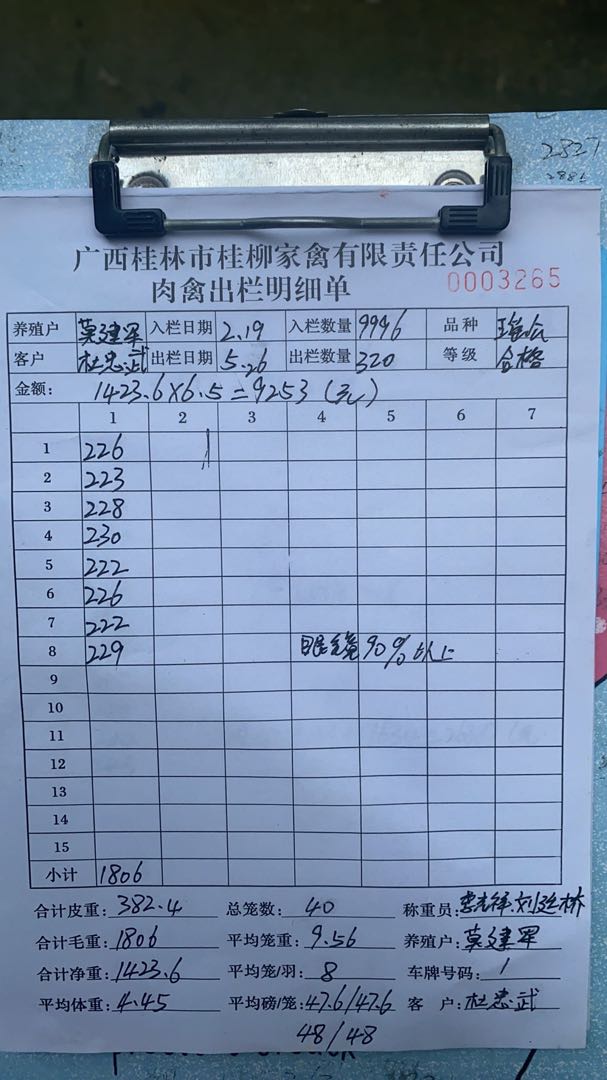 2827
2881
广西桂林市桂柳家禽有限责任公司
肉禽出栏明细单
0003265
养殖户 莫建军 入栏日期 2.19 入栏数量 9996 品种
客户 杜忠武 出栏日期 5.26 出栏数量 320 等级 合格
金额: 1423.6×6.5=9253(元)
1 2 3 4 5 6 7
1 226
2 223
3 228
4 230
5 222
6 226
7 222
8 229 90%以上
9
10
11
12
13
14
15
小计 1806
合计皮重: 382.4 总笼数: 40 称重员:
合计毛重: 1806 平均笼重: 9.56 养殖户: 莫建军
合计净重: 1423.6 平均笼/羽: 8 车牌号码: 1
平均体重: 4.45 平均磅/笼: 47.6/47.6 客 户: 杜忠武
48/48